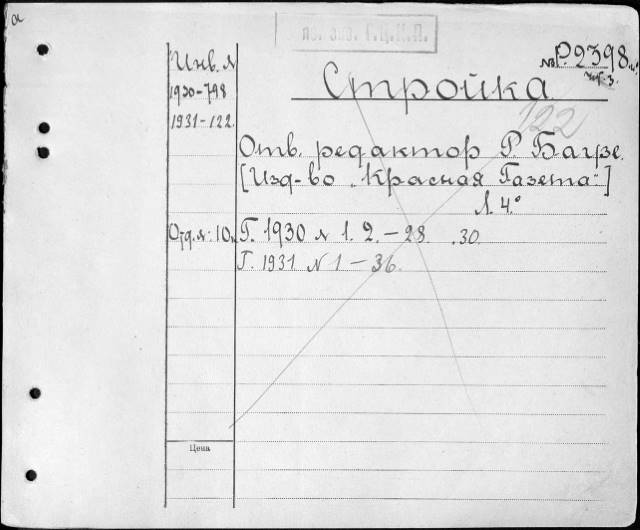 a
по зав. Г.Ц.К.П.
Инв. №
1930-798
1931-122.
№ Р. 2398
Стройка
122
Отв. редактор Р. Багзе.
[Изд-во „Красная Газета“]
Л. 4°
Отд. №: 10к.
Г. 1930 № 1. 2. – 28. .30.
Г. 1931 № 1 – 36.
Цена